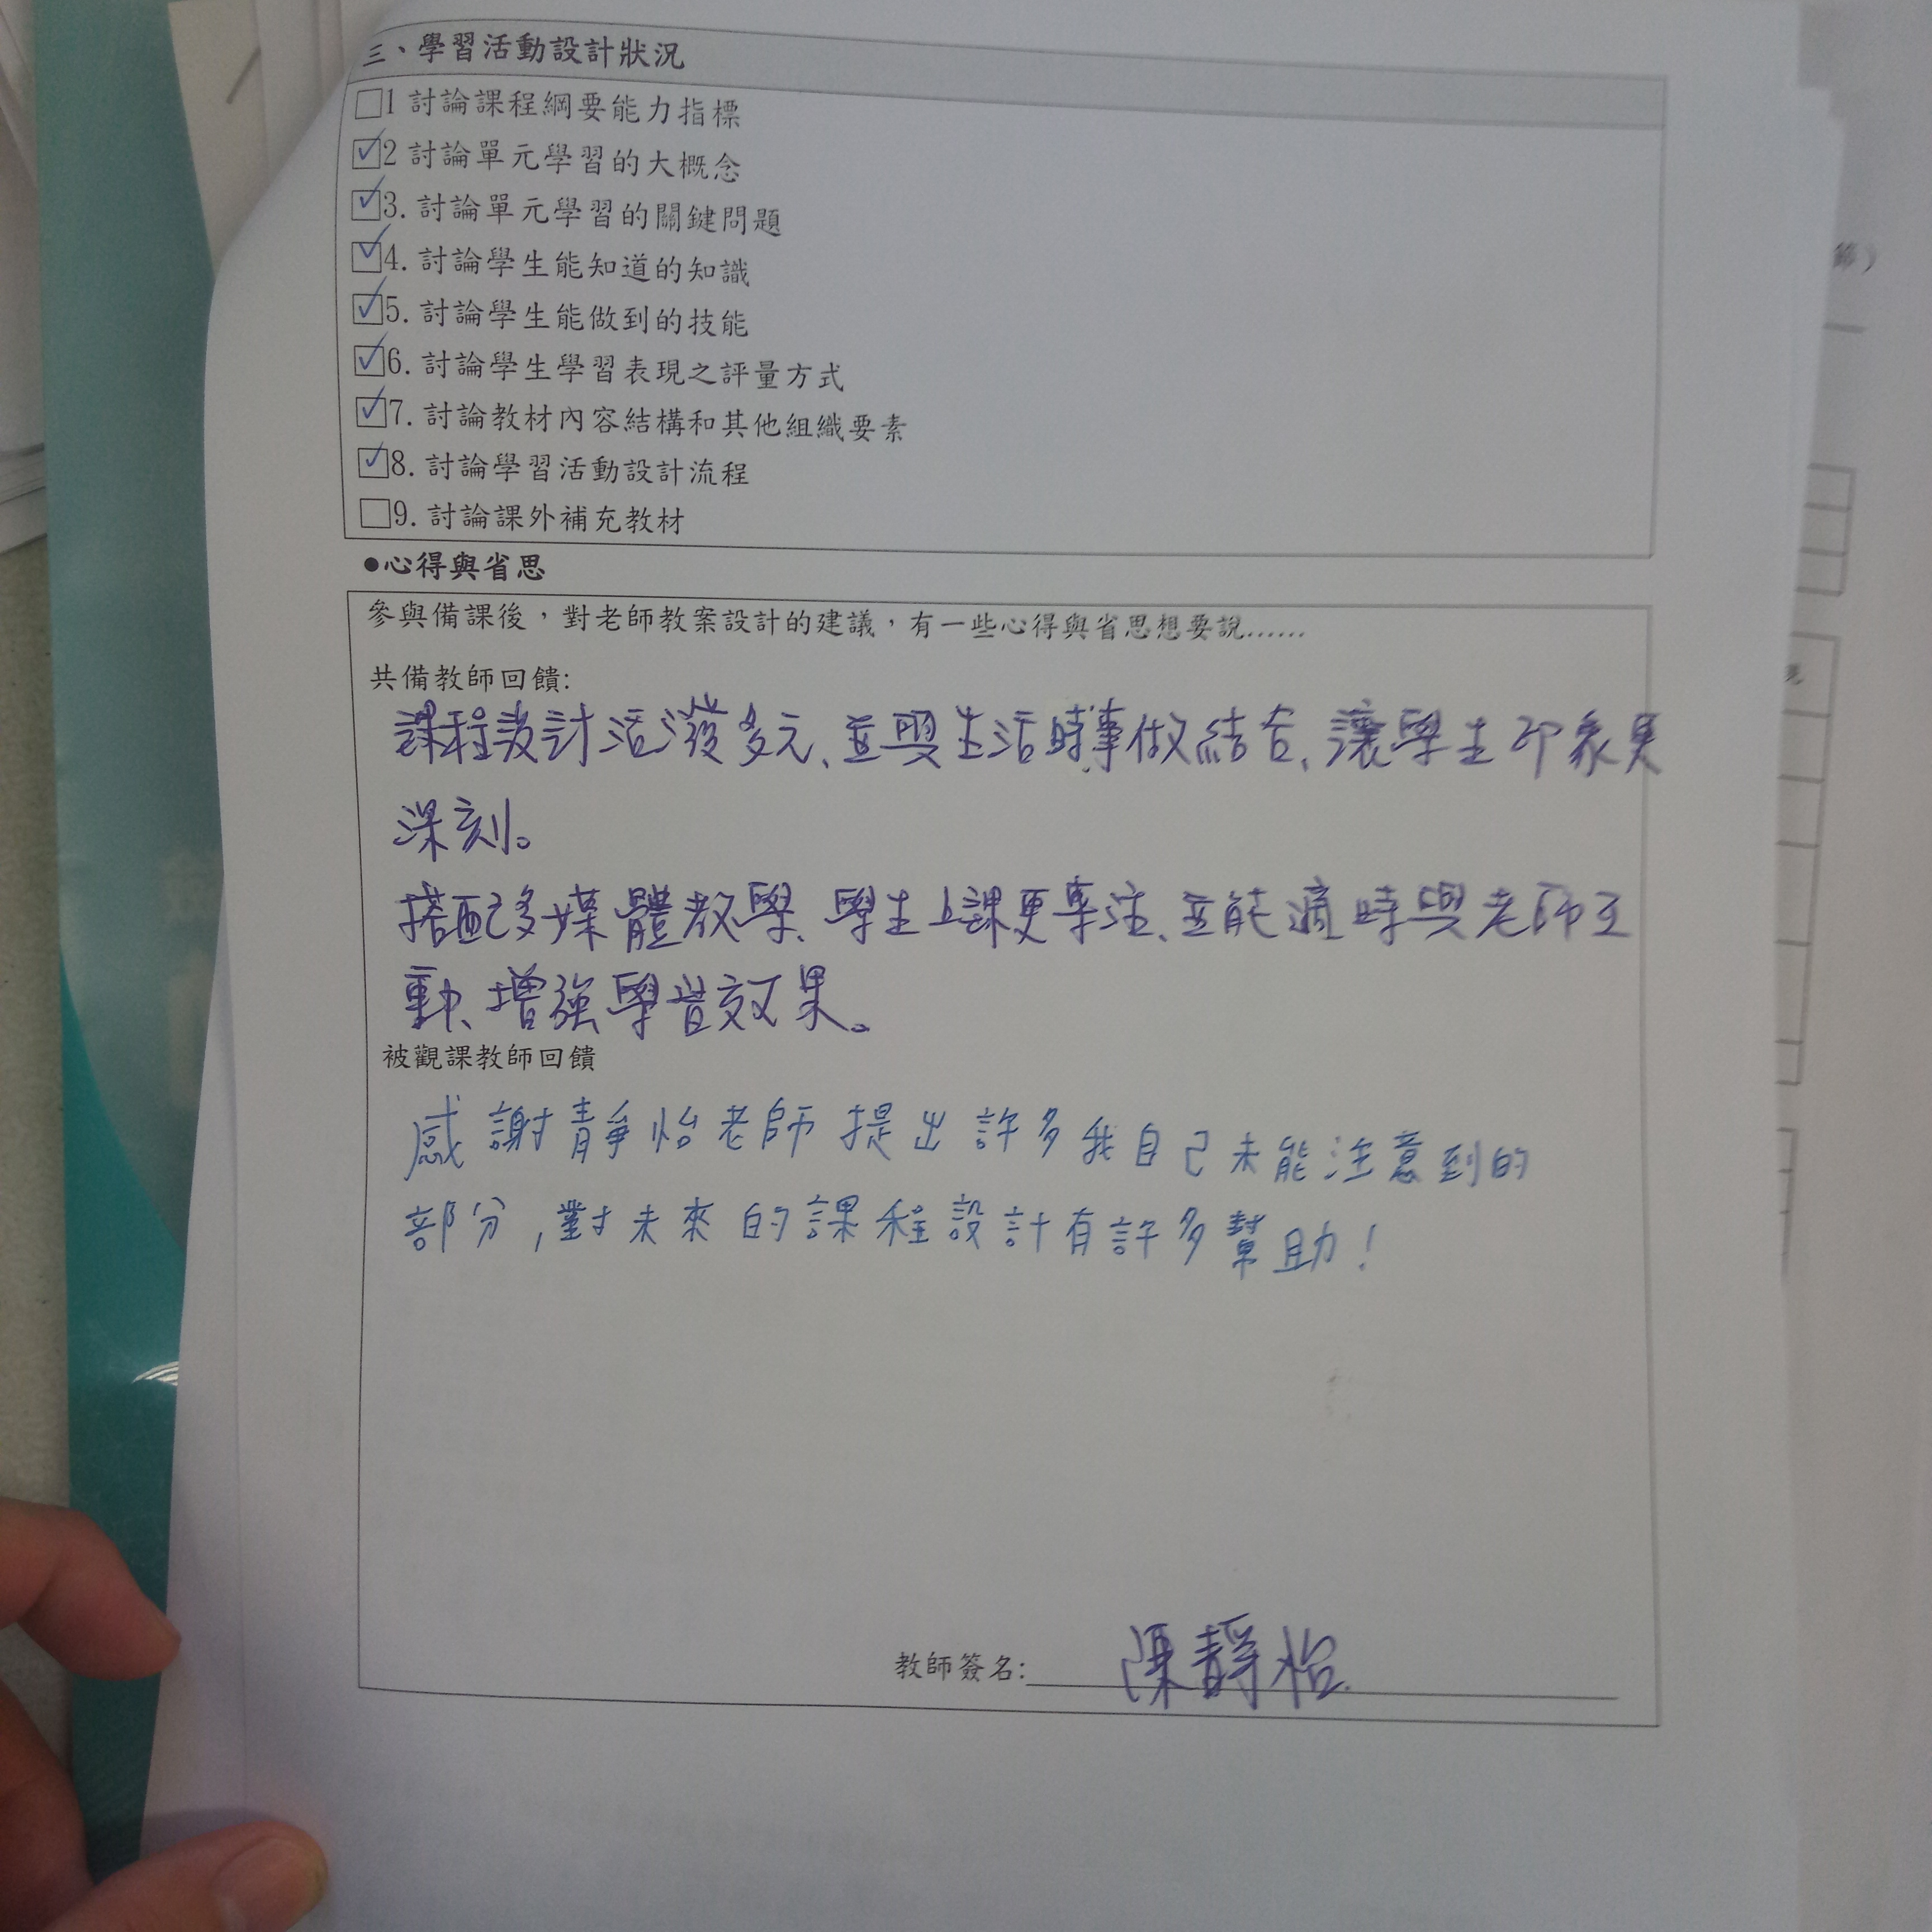 三、學習活動設計狀況
□1 討論課程綱要能力指標
☑2 討論單元學習的大概念
☑3. 討論單元學習的關鍵問題
☑4. 討論學生能知道的知識
☑5. 討論學生能做到的技能
☑6. 討論學生學習表現之評量方式
☑7. 討論教材內容結構和其他組織要素
☑8. 討論學習活動設計流程
□9. 討論課外補充教材
●心得與省思
參與備課後，對老師教案設計的建議，有一些心得與省思想要說……
共備教師回饋:
課程設計活潑多元、並與生活時事做結合、讓學生印象更
深刻。
搭配多媒體教學、學生上課更專注、並能適時與老師互
動、增強學習效果。
被觀課教師回饋
感謝靜怡老師提出許多我自己未能注意到的
部分,對未來的課程設計有許多幫助!
教師簽名: 陳靜怡
節)